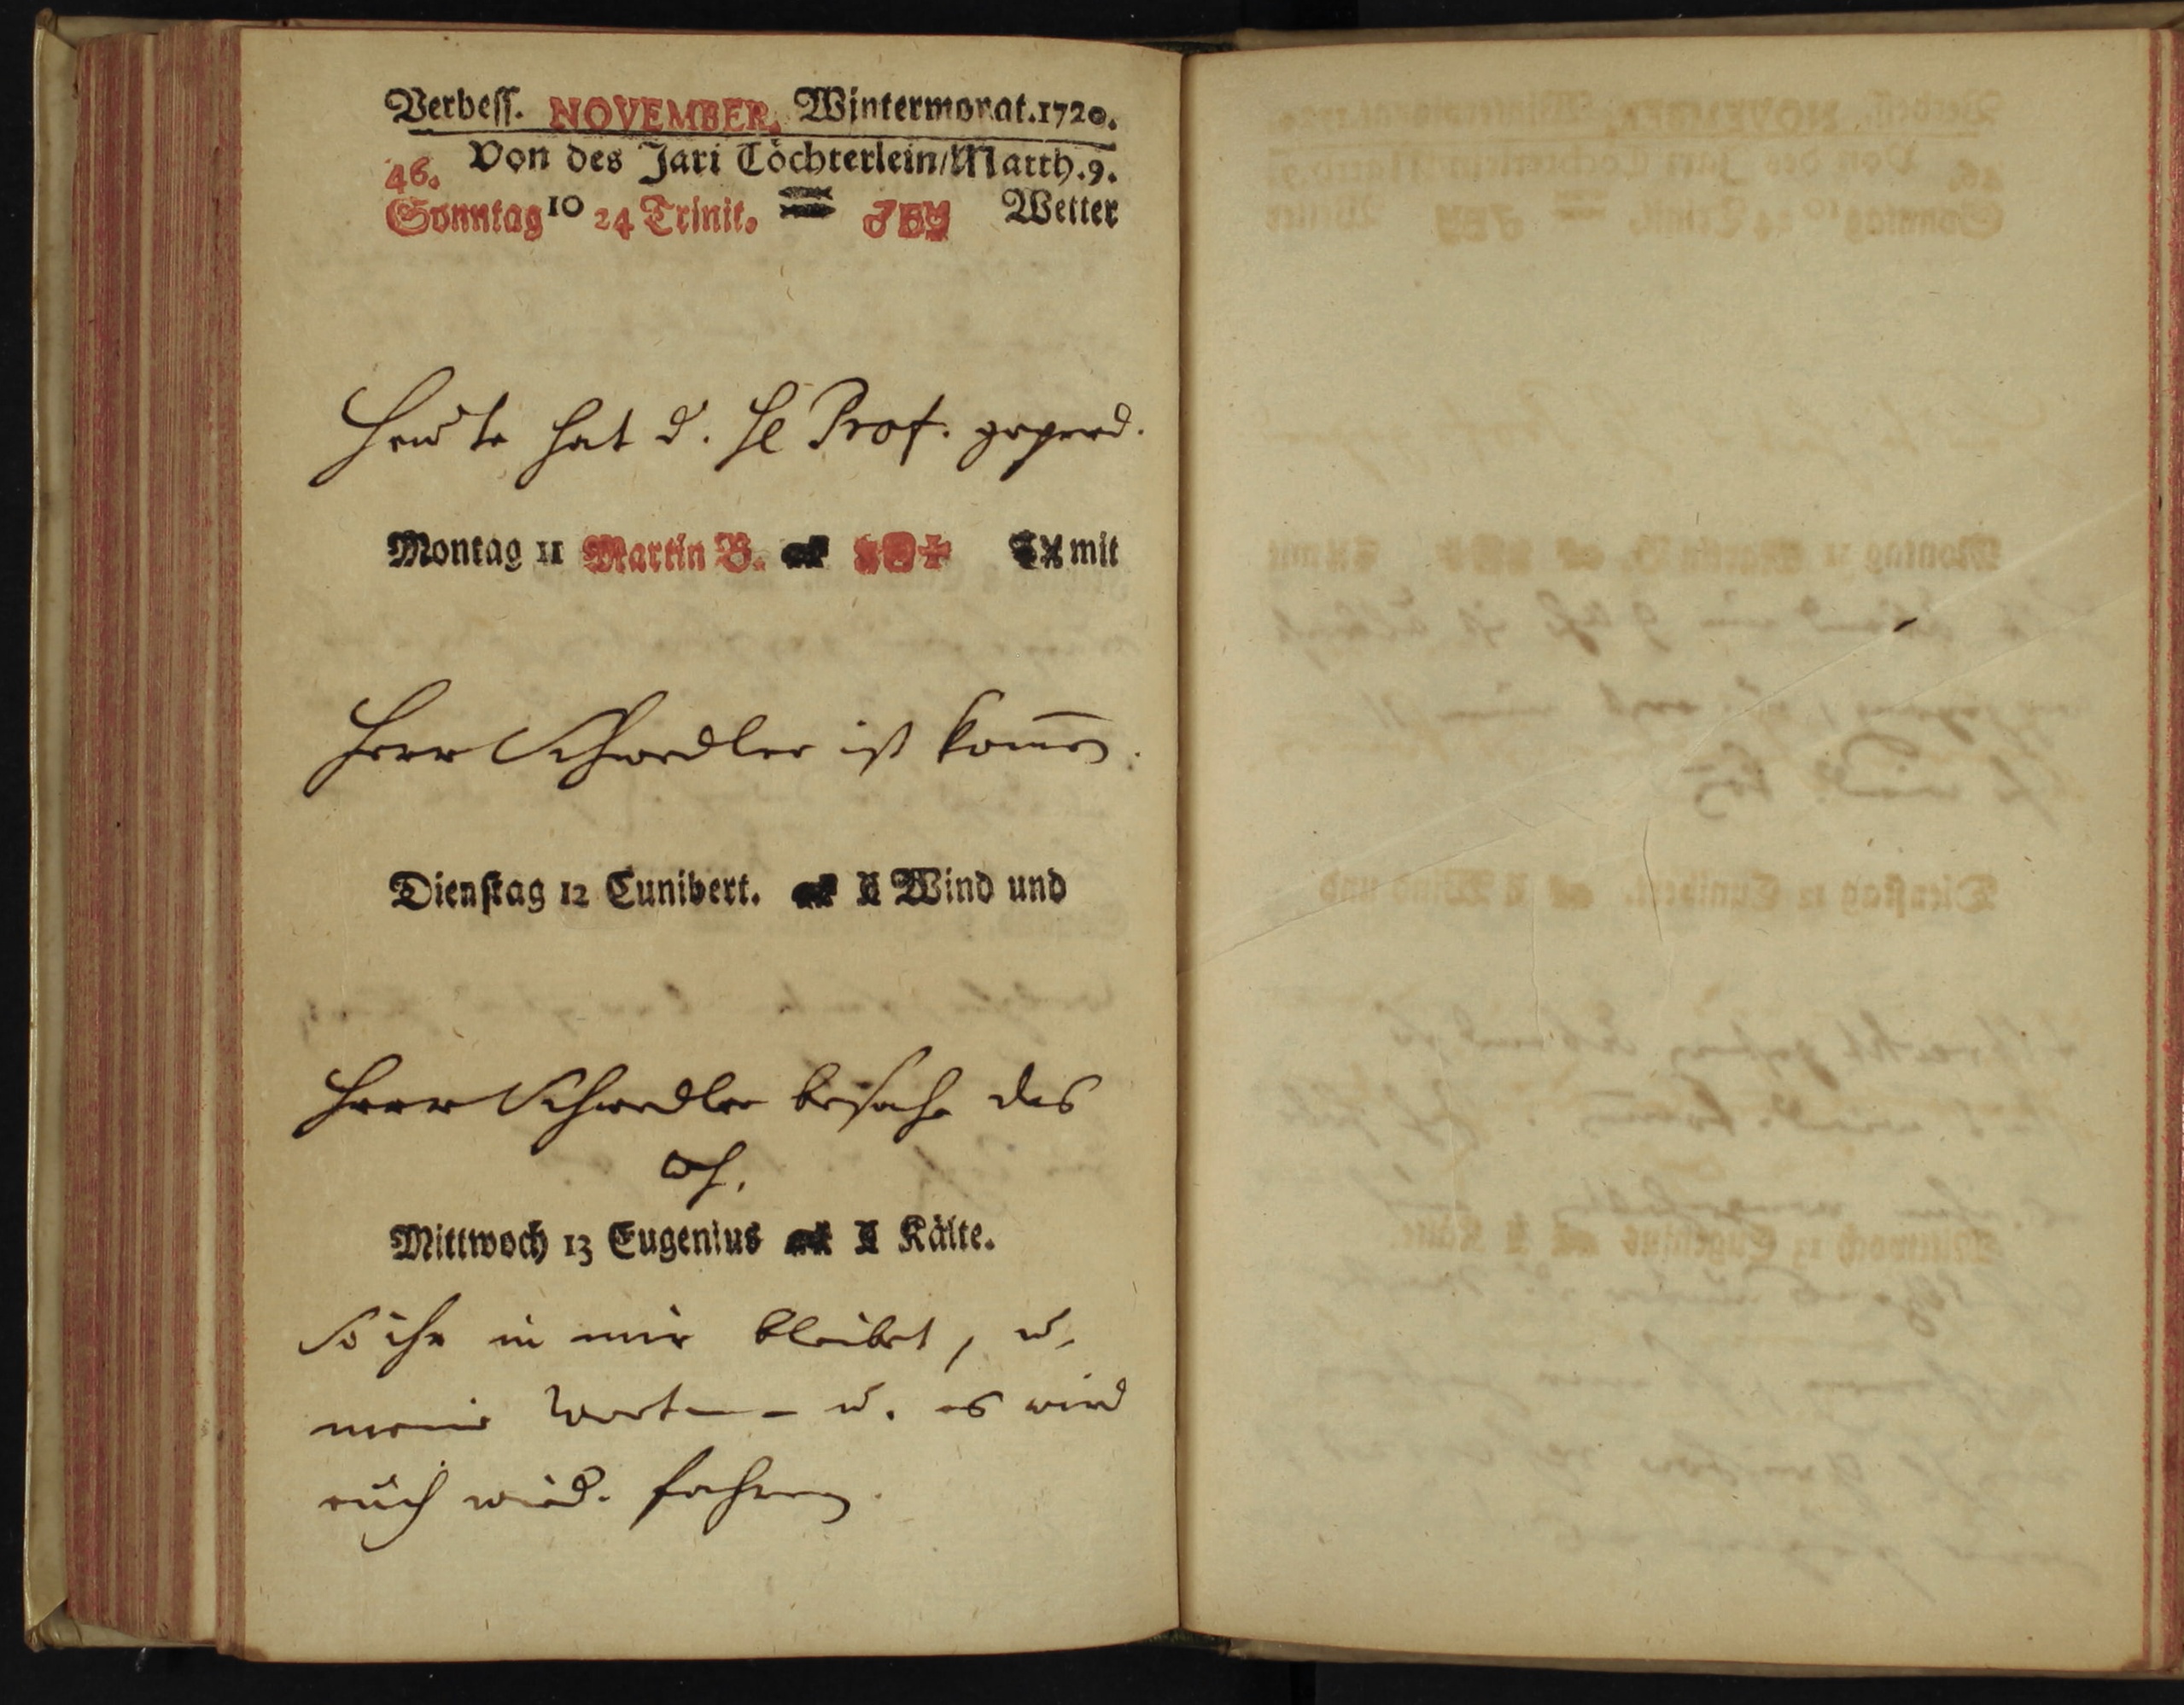 Verbess. NOVEMBER. Wintermonat. 1720.
46. Von des Jari Töchterlein/Matth. 9.
Sonntag 10 24 Trinit. Wetter
Heute hat d. H. Prof. gepred.
Montag 11 Martin B. mit
Herr Schwedler ist kom̄en.
Dienstag 12 Cunibert. Wind und
Herr Schwedler besahe das
Wh.
Mittwoch 13 Eugenius Kälte.
So ihr in mir bleibet, u.
meine Worte - u. es wird
euch wied. fahren.